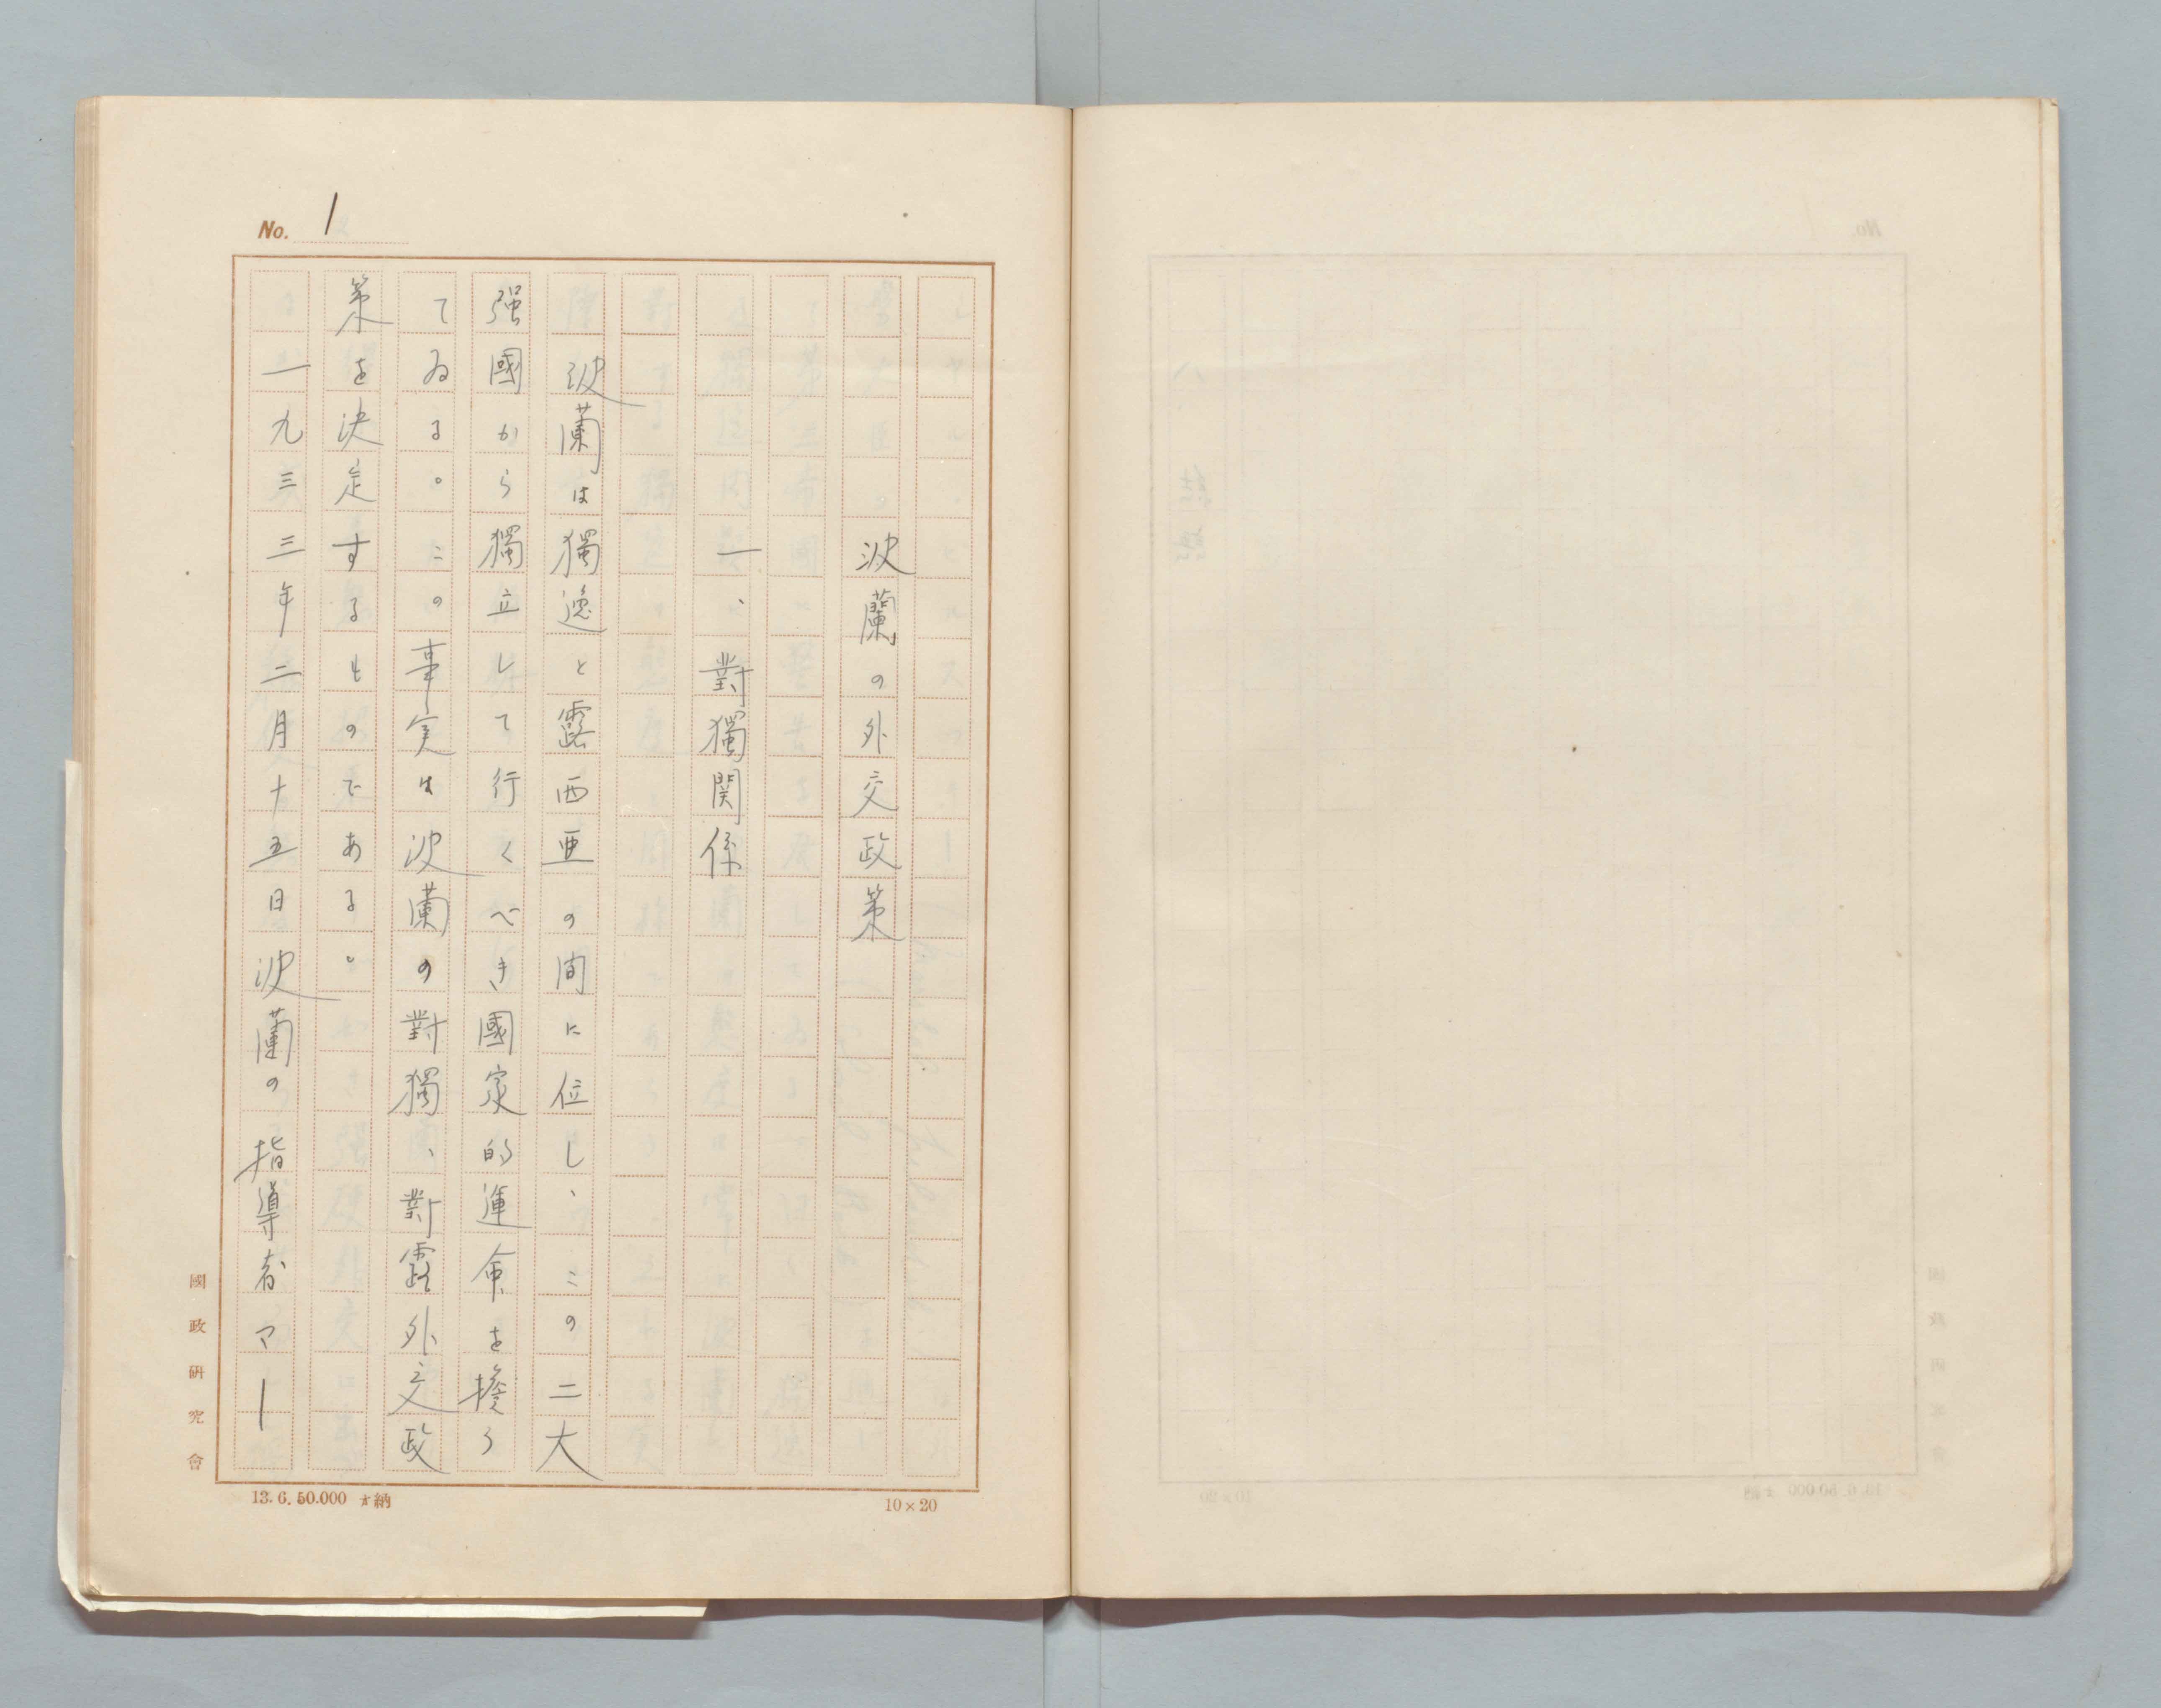 No. 1
波蘭の外交政策
一、對獨関係
波蘭は獨逸と露西亜の間に位し、この二大
强國から獨立して行くべき國家的運命を擔う
てゐる。この事実は波蘭の對獨、對露外交政
策を決定するものである。
一九三三年二月十五日波蘭の指導者マー
國政研究會
13.6.50.000 才納
10×20